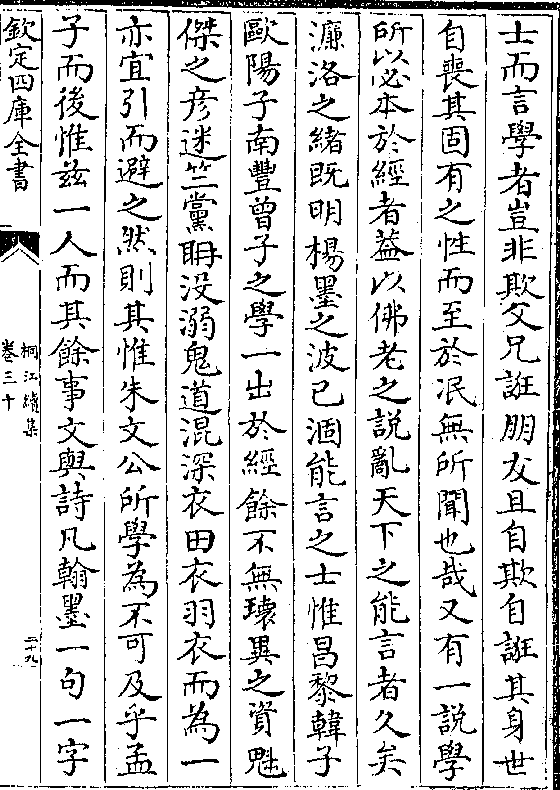 士而言學者豈非欺父兄誑朋友且自欺自誑其身世
自喪其固有之性而至於冺無所聞也哉又有一說學
所以必本於經者葢以佛老之說亂天下之能言者久矣
濂洛之緒既明楊墨之波已涸能言之士惟昌黎韓子
歐陽子南豐曾子之學一出於經餘不無瓌異之資魁
傑之彦迷竺黨聃没溺鬼道混深衣田衣羽衣而為一
亦宜引而避之然則其惟朱文公所學為不可及乎孟
子而後惟兹一人而其餘事文與詩凡翰墨一句一字
欽定四庫全書
桐江續集
卷三十
二十九